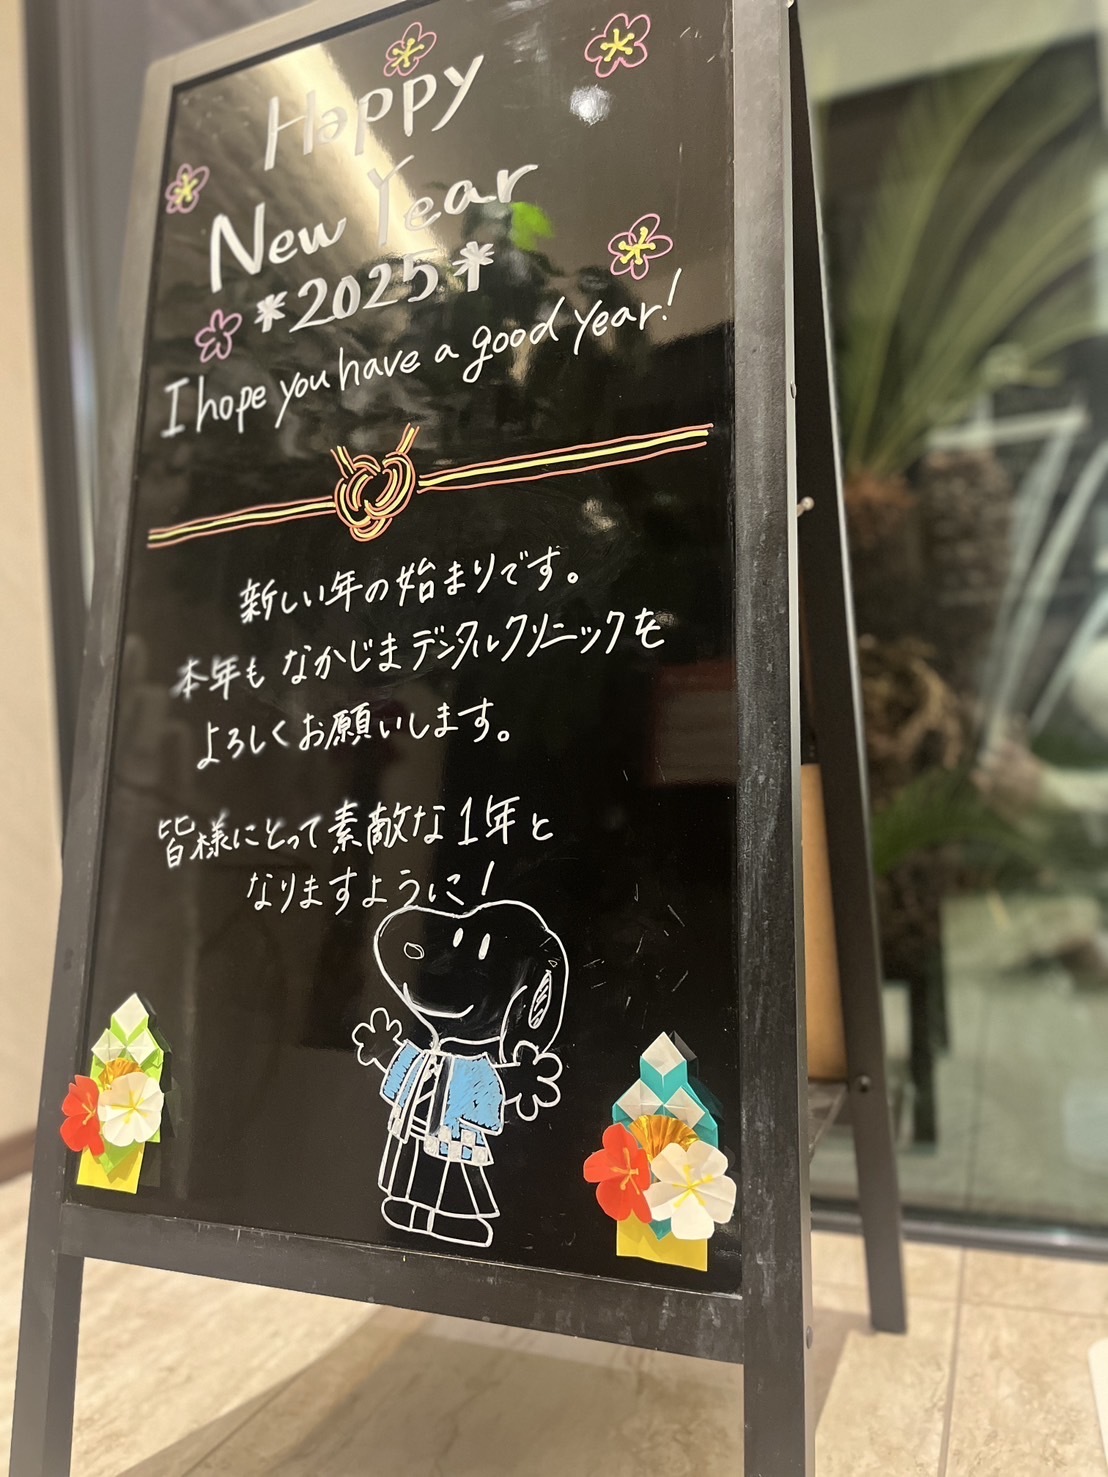 Happy
New Year
*2025*
I hope you have a good year!
新しい年の始まりです。
本年も なかじまデンタルクリニックを
よろしくお願いします。
皆様にとって素敵な1年と
なりますように!